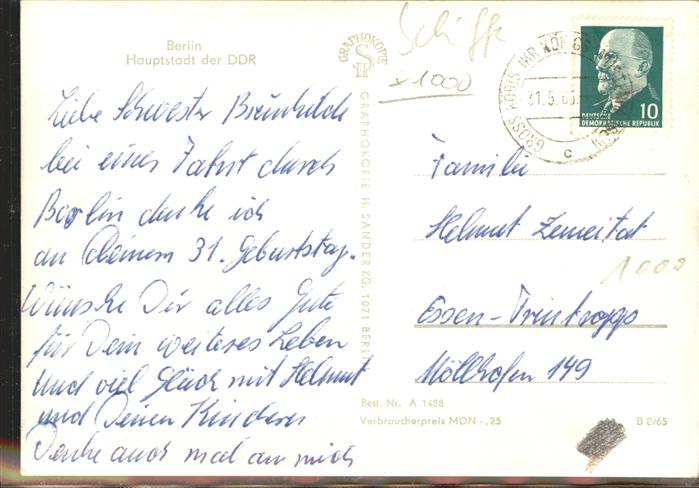 Berlin
Hauptstadt der DDR
Liebe Schwester Brünhilde
bei einer Fahrt durch
Berlin denke ich
an Deinem 31. Geburtstag.
Wünsche Dir alles Gute
für Dein weiteres Leben
und viel Glück mit Helmut
und Deinen Kindern
Denke auch mal an mich
GRAPHOKOPIE
GRAPHOKOPIE H. SANDER KG, 1071 BERLIN
Schiffe
x 1000
GROSS KÖRIS KR KÖNIGS
31.5.65
c
10
DEUTSCHE
DEMOKRATISCHE REPUBLIK
Familie
Helmut Zemeitat
1000
Essen-Frintropp
Möllhofen 149
Best.-Nr. A 1438
Verbraucherpreis MDN -,25
B 8/65